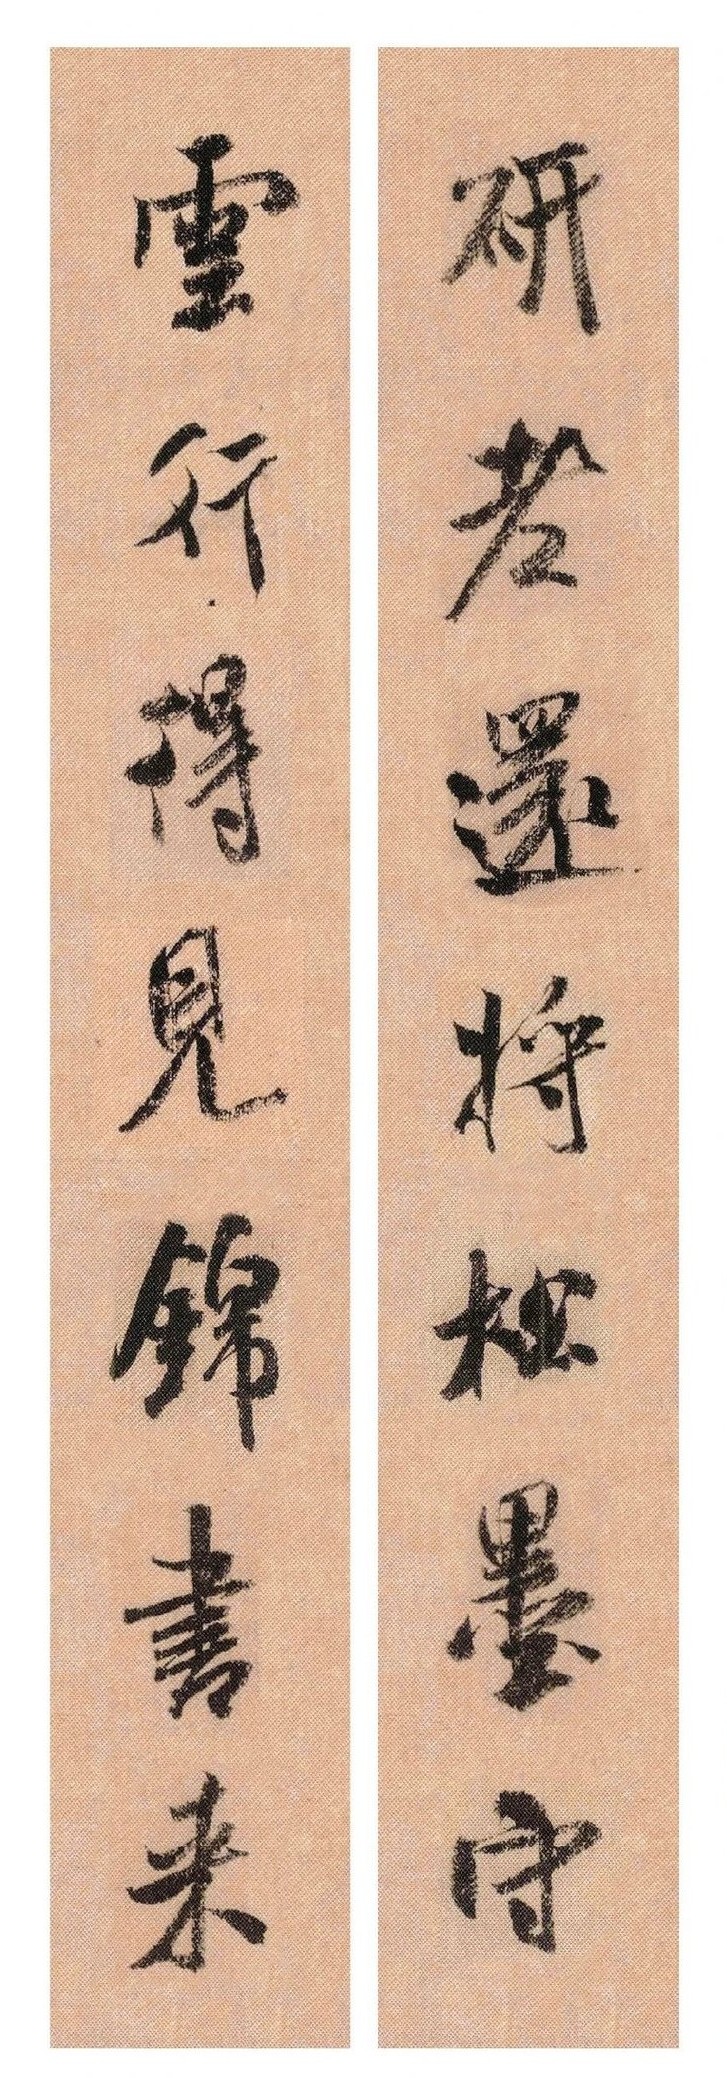 研若還將松墨守
雲行得見錦書来